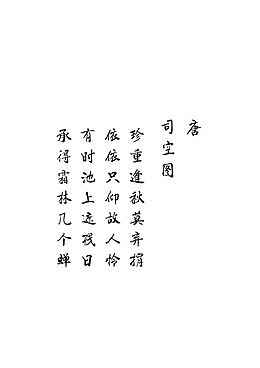 唐
司空图
珍重逢秋莫弃捐
依依只仰故人怜
有时池上遮残日
承得霜林几个蝉